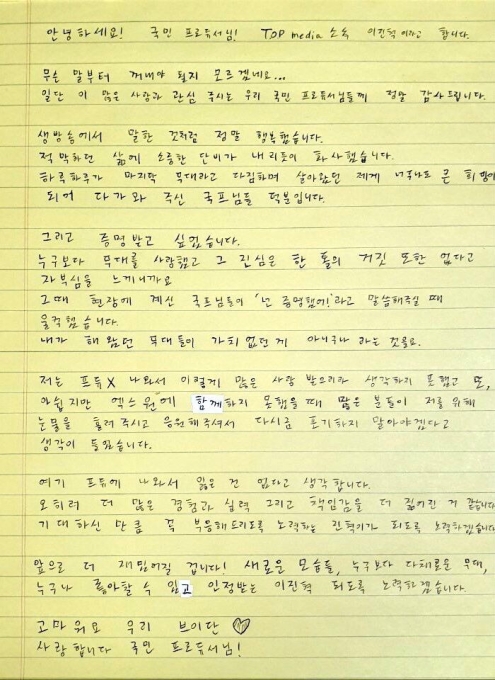 안녕하세요! 국민 프로듀서님! TOP media 소속 이진혁이라고 합니다.
무슨 말부터 꺼내야 될지 모르겠네요...
일단 이 많은 사랑과 관심 주시는 우리 국민 프로듀서님들께 정말 감사드립니다.
생방송에서 말한 것처럼 정말 행복했습니다.
적막하던 삶에 소중한 단비가 내리듯이 화사했습니다.
하루하루가 마지막 무대라고 다짐하며 살아왔던 제게 너무나도 큰 희망이
되어 다가와 주신 국프님들 덕분입니다.
그리고 증명받고 싶었습니다.
누구보다 무대를 사랑했고 그 진심은 한 톨의 거짓 또한 없다고
자부심을 느끼니까요
그때 현장에 계신 국프님들이 '넌 증명했어!'라고 말씀해주실 때
울컥했습니다.
내가 해왔던 무대들이 가치 없던게 아니구나 라는 것을요.
저는 프듀X 나와서 이렇게 많은 사랑 받으리라 생각하지 못했고 또,
아쉽지만 엑스원에 함께하지 못했을 때 많은 분들이 저를 위해
눈물을 흘려주시고 응원해주셔서 다시금 포기하지 말아야겠다고
생각이 들었습니다.
여기 프듀에 나와서 잃은 건 없다고 생각합니다.
오히려 더 많은 경험과 실력 그리고 책임감을 더 짊어진 거 같습니다
기대하신 만큼 꼭 부응해드리도록 노력하는 진혁이가 되도록 노력하겠습니다
앞으로 더 재밌어질 겁니다! 새로운 모습들, 누구보다 다채로운 무대,
누구나 좋아할 수 있고 인정받는 이진혁 되도록 노력하겠습니다.
고마워요 우리 브이단 ♡
사랑합니다 국민 프로듀서님!